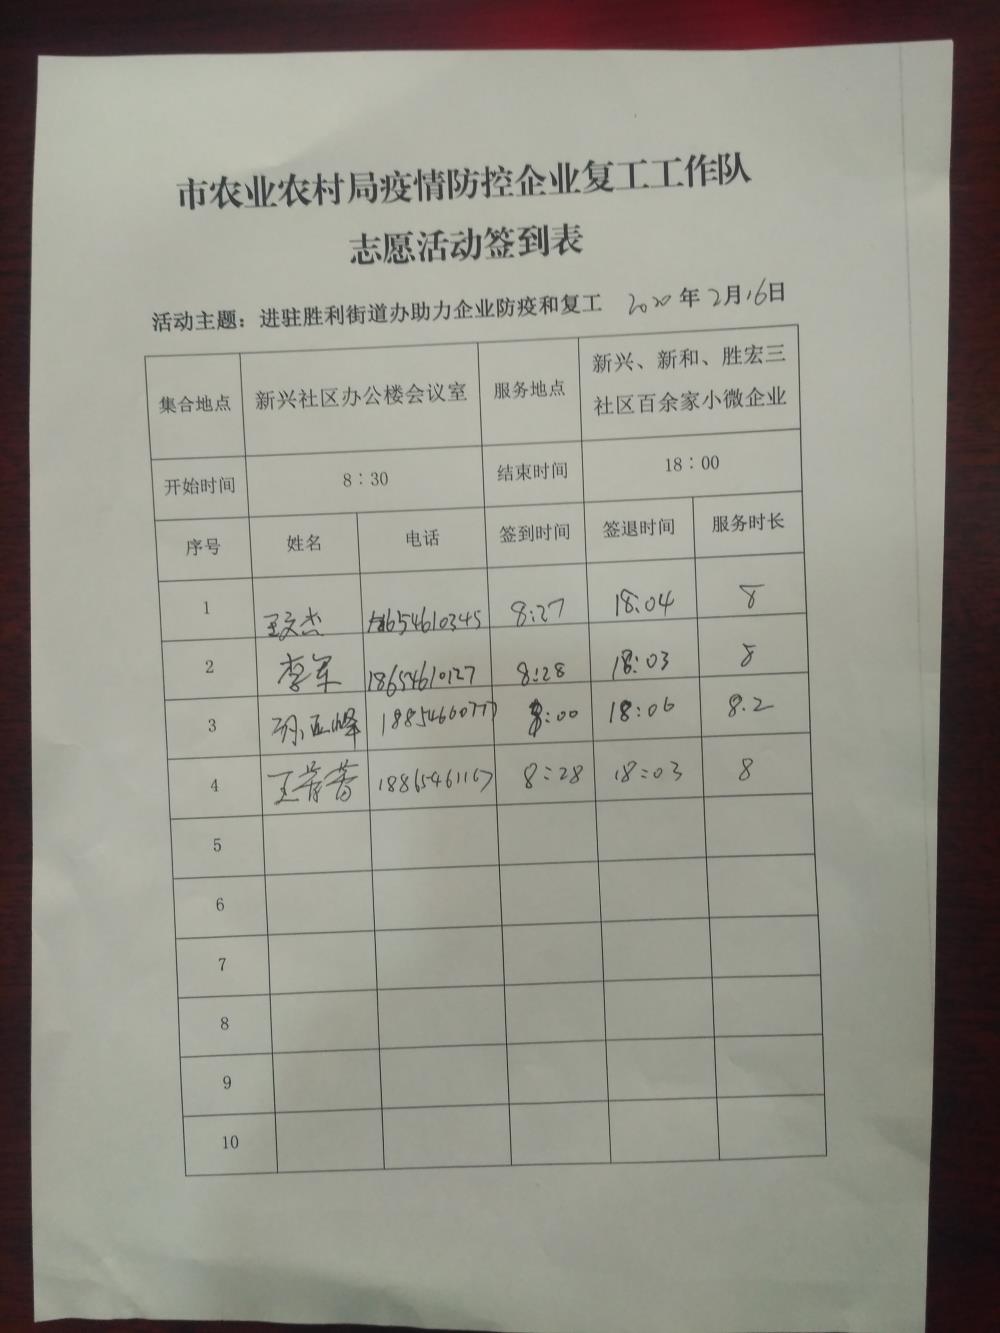 市农业农村局疫情防控企业复工工作队
志愿活动签到表
活动主题：进驻胜利街道办助力企业防疫和复工 2020年2月16日
集合地点 新兴社区办公楼会议室 服务地点 新兴、新和、胜宏三
社区百余家小微企业
开始时间 8：30 结束时间 18：00
序号 姓名 电话 签到时间 签退时间 服务时长
1 王文杰 8:27 18:04 8
2 李军 18654610127 8:28 18:03 8
3 孙亚峰 18854660777 8:00 18:06 8.2
4 18865461167 8:28 18:03 8
5
6
7
8
9
10